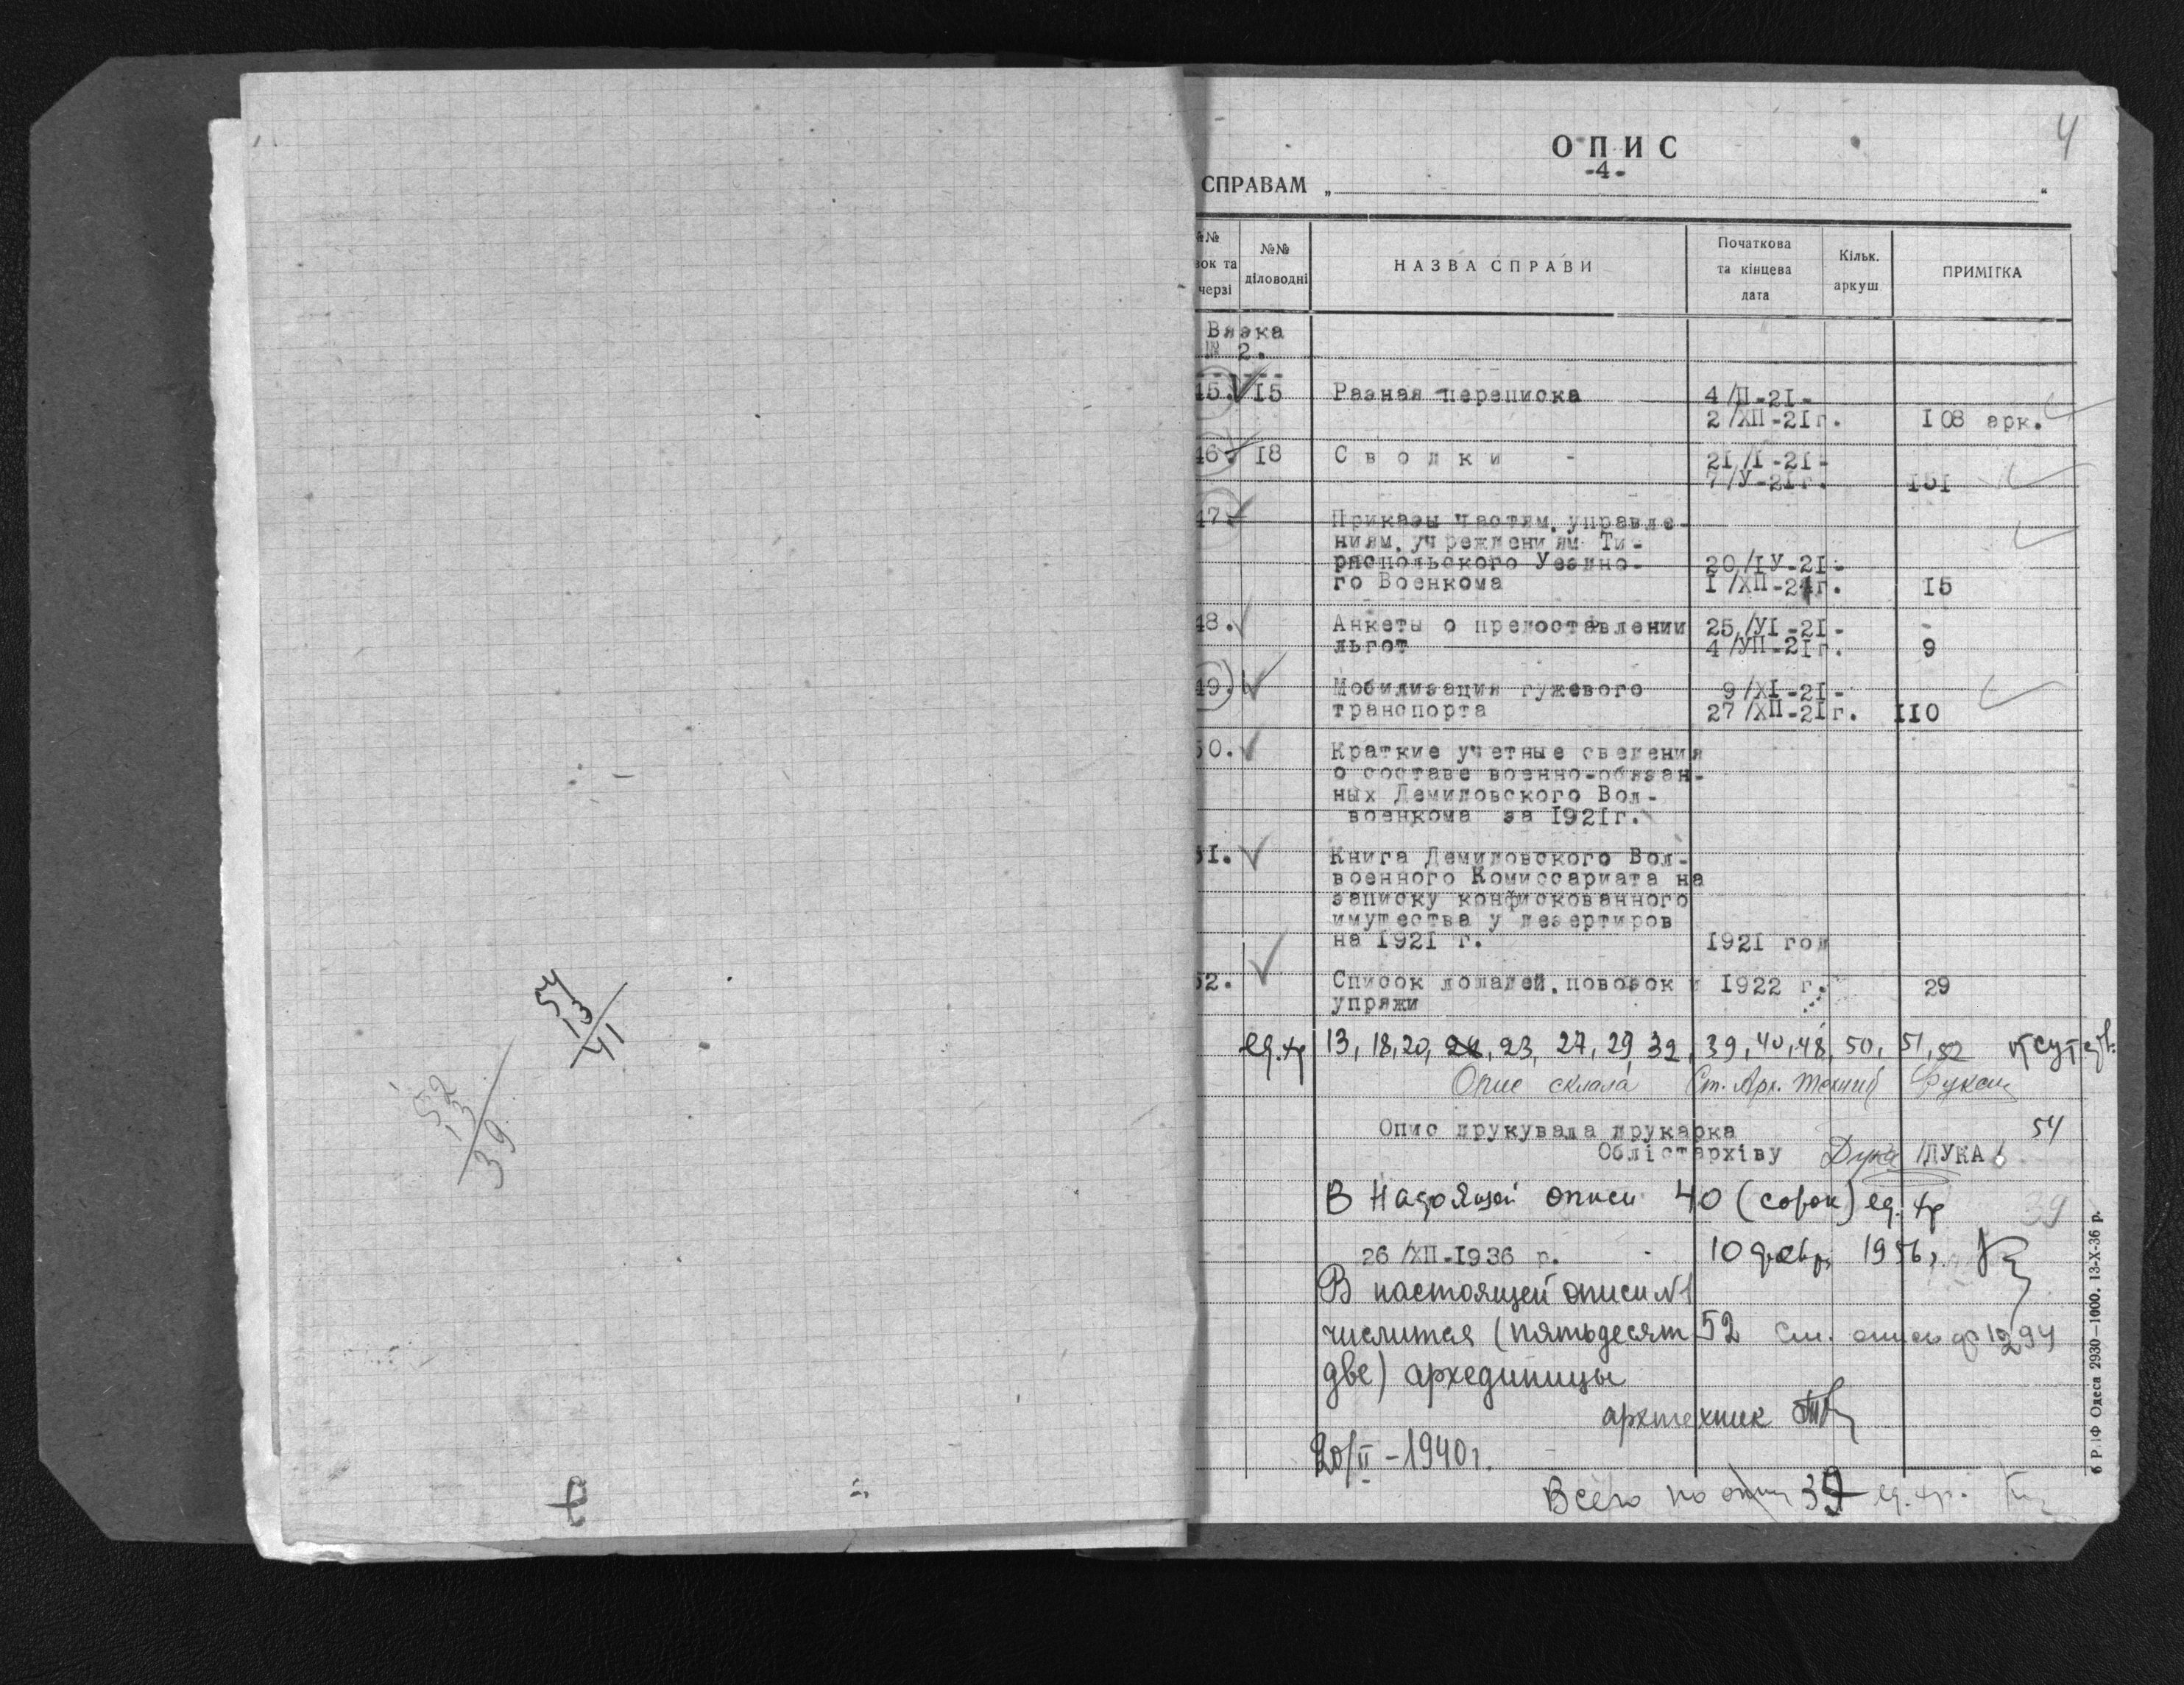 4
ОПИС
-4-
СПРАВАМ „ “
№№
зок та
черзі
№№
діловодні
НАЗВА СПРАВИ
Початкова
та кінцева
дата
Кільк.
аркуш
ПРИМІТКА
Вязка
№ 2.
45. 15 Разная переписка 4/П-21-
2/ХП-21г. 108 арк.
46. 18 Сводки - 21/I-21-
7/У-21г. 151
47. Приказы частям, управле-
ниям, учреждениям Ти-
распольского Уездно- 20/IУ-21-
го Военкома 1/ХП-21г. 15
48. Анкеты о предоставлении 25/УI-21- -
льгот 4/УП-21г. 9
49. Мобилизация гужевого 9/XI-21-
транспорта 27/ХП-21г. 110
50. Краткие учетные сведения
о составе военно-обязан-
ных Демидовского Вол-
военкома за 1921г.
51. Книга Демидовского Вол-
военного Комиссариата на
записку конфискованного
имущества у дезертиров
на 1921 г. 1921 год
52. Список лошадей, повозок и 1922 г. 29
упряжи
ед. хр 13, 18, 20, 23, 27, 29, 32, 39, 40, 48, 50, 51, 52
Опис склала Ст. Арх. технік
Опис друкувала друкарка 54
Облістархіву Дука /ДУКА/
В настоящей описи 40 (сорок) ед. хр 39
26/ХП-1936 г. 10 февр 1956 г.
В настоящей описи №1
числится (пятьдесят 52 см. опись ф 1294
две) архединицы
архтехник
20/II-1940 г.
Всего по описи 39 ед. хр.
б Р ІФ Одеса 2930—1000. 13-X-36 р.
54
13
41
52
13
39